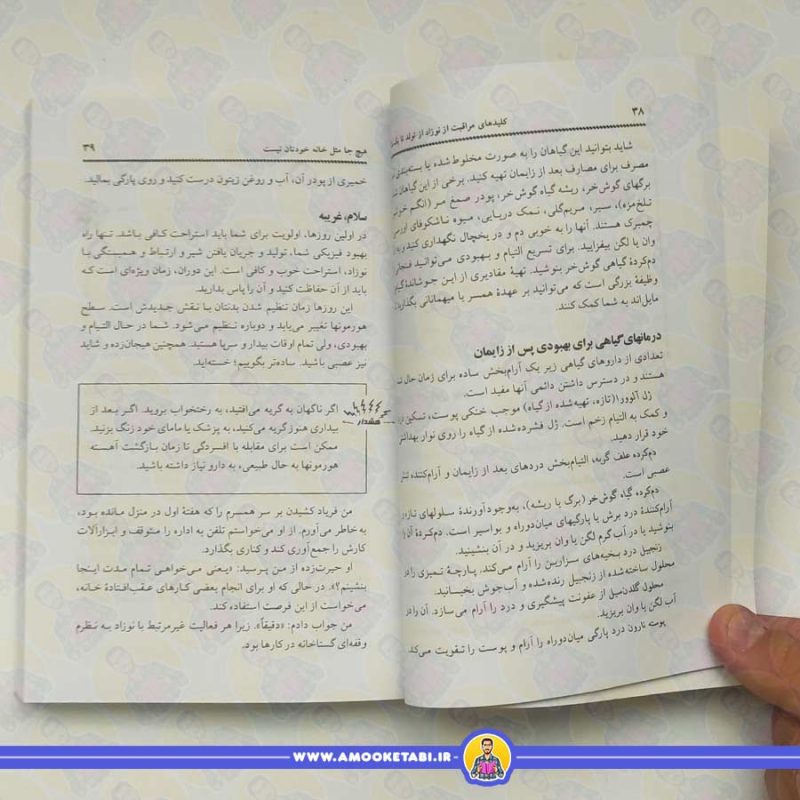 ۳۸
کلیدهای مراقبت از نوزاد از تولد تا
شاید بتوانید این گیاهان را به صورت مخلوط شده یا بسته‌بندی
مصرف برای مصارف بعد از زایمان تهیه کنید. برخی از این گیاهان
برگهای گوش‌خر، ریشه گیاه گوش‌خر، پودر صمغ مر (انگم
تلخ‌مزه)، سیر، مریم‌گلی، نمک دریایی، میوه ناشکوفای
چمبرک هستند. آنها را به خوبی دم و در یخچال نگهداری کنید و به
وان یا لگن بیفزایید. برای تسریع التیام و بهبودی می‌توانید فنجانی
دم‌کردهٔ گیاهی گوش‌خر بنوشید. تهیهٔ مقادیری از این جوشانده
وظیفهٔ بزرگی است که می‌توانید بر عهدهٔ همسر یا میهمانانی بگذارید
مایل‌اند به شما کمک کنند.
درمانهای گیاهی برای بهبودی پس از زایمان
تعدادی از داروهای گیاهی زیر یک آرام‌بخش ساده برای زمان حال
هستند و در دسترس داشتن دائمی آنها مفید است.
ژل آلوورا (تازه، تهیه‌شده از گیاه) موجب خنکی پوست، تسکین
و کمک به التیام زخم است. ژل فشرده‌شده از گیاه را روی نوار بهداشتی
خود قرار دهید.
دم‌کرده علف گربه، التیام‌بخش دردهای بعد از زایمان و آرام‌کننده
عصبی است.
دم‌کرده گیاه گوش‌خر (برگ یا ریشه)، به‌وجودآورندهٔ سلولهای تازه و
آرام‌کنندهٔ درد برش یا پارگیهای میان‌دوراه و بواسیر است. دم‌کردهٔ آن را
بنوشید یا در آب گرم لگن یا وان بریزید و در آن بنشینید.
زنجبیل درد بخیه‌های سزارین را آرام می‌کند. پارچهٔ تمیزی را در
محلول ساخته‌شده از زنجبیل رنده‌شده و آب‌جوش بخیسانید.
محلول گلدن‌سیل از عفونت پیشگیری و درد را آرام می‌سازد. آن را در
آب لگن یا وان بریزید.
پوسته نارون درد پارگی میان‌دوراه را آرام و پوست را تقویت می‌کند.
هیچ جا مثل خانه خودتان نیست
۳۹
خمیری از پودر آن، آب و روغن زیتون درست کنید و روی پارگی بمالید.
سلام، غریبه
در اولین روزها، اولویت برای شما باید استراحت کافی باشد. تنها راه
بهبود فیزیکی شما، تولید و جریان یافتن شیر و ارتباط و همبستگی با
نوزاد، استراحت خوب و کافی است. این دوران، زمان ویژه‌ای است که
باید از آن حفاظت کنید و آن را پاس بدارید.
این روزها زمان تنظیم شدن بدنتان با نقش جدیدش است. سطح
هورمونها تغییر می‌یابد و دوباره تنظیم می‌شود. شما در حال التیام و
بهبودی، ولی تمام اوقات بیدار و سرپا هستید. همچنین هیجان‌زده و شاید
نیز عصبی باشید. ساده‌تر بگوییم؛ خسته‌اید.
هشدار
اگر ناگهان به گریه می‌افتید، به رختخواب بروید. اگر بعد از
بیداری هنوز گریه می‌کنید، به پزشک یا مامای خود زنگ بزنید.
ممکن است برای مقابله با افسردگی تا زمان بازگشت آهسته
هورمونها به حال طبیعی، به دارو نیاز داشته باشید.
من فریاد کشیدن بر سر همسرم را که هفتهٔ اول در منزل مانده بود،
به‌خاطر می‌آورم. از او می‌خواستم تلفن به اداره را متوقف و ابزارآلات
کارش را جمع‌آوری کند و کناری بگذارد.
او حیرت‌زده از من پرسید: «یعنی می‌خواهی تمام مدت اینجا
بنشینم؟». در حالی که او برای انجام بعضی کارهای عقب‌افتادهٔ خانه،
می‌خواست از این فرصت استفاده کند.
من جواب دادم: «دقیقاً». زیرا هر فعالیت غیرمرتبط با نوزاد به نظرم
وقفه‌ای گستاخانه در کارها بود.
WWW.AMOOKETABI.IR